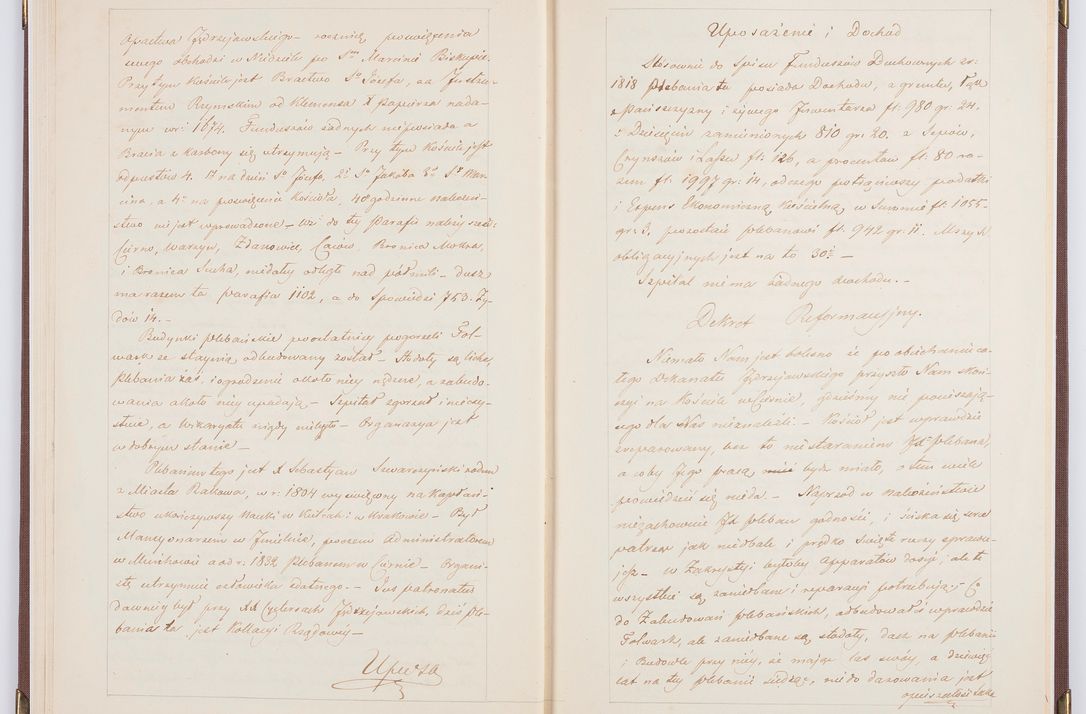 Opactwa Jędrzejowskiego – rocznicę poswięcenia
swego obchodzi w Niedzielę po Sm Marcinie Biskupie.
Przy tym Kościele jest Bractwo So Józefa, za Instru-
mentem Rzymskim od Klemensa X papierza nada-
nym w r: 1674. Funduszów żadnych nie posiada a
Bracia z karbony się utrzymują – Przy tym Kościele jest
odpustów 4. 1y na dzień So Józefa, 2i So Jakóba 3i So Mar-
cina, a 4y na poswięcenie Kościoła, 40 godzinne nabożeń-
stwo nie jest wprowadzone – Wsi do tey Parafii należy sześć:
Cierno, Warzyn, Zdanowice, Caców, Brynica Mokra,
i Brynica Sucha, niedaley odległe nad pół mili – Dusz
ma razem ta parafia 1102, a do Spowiedzi 753. Ży-
dów 14. –
Budynki plebańskie po ostatniey pogorzeli Fol-
wark ze staynią, odbudowany został – Stodoły są liche,
plebania zaś, i ogrodzenie około niey nędzne, a zabudo-
wania około niey upadają – Szpital zgorzał i nie exy-
stuie, a Wikaryatu nigdy niebyło – Organarya jest
w dobrym stanie –
Plebanem tego jest X Sebastyan Swarczyński rodem
z Miasta Rakowa, w r: 1804 wyswięcony na Kapłań-
stwo ukończywszy Nauki w Kielcach i w Krakowie – Był
Mansyonarzem w Imielnie, poczem Administratorem
w Mnichowie a od r: 1832 Plebanem w Ciernie – Organi-
stę utrzymuie człowieka zdatnego. – Jus patronatus
dawniey był przy XX Cystersach Jędrzejowskich, dziś ple-
bania ta jest Kollacyi Rządowey –
Uposa
Uposażenie i Dochód
Stosownie do Spisu Funduszów Duchownych z r:
1818 plebania ta posiada Dochodu, z gruntu, Łąk
z Pańszczyzny i żywego Inwentarza fl: 980 gr: 24.
z Dziesięcin zamienionych 810 gr: 20. z Sepów,
Czynszów i Lasu fl: 126, a procentów fl: 80 ra-
zem fl: 1997 gr: 14, odczego potrąciwszy podatki
i Expens Ekonomiczną Kościelną w Summie fl: 1055-
gr: 3, pozostaie plebanowi fl: 942 gr: 11. Mszy S
obligacyjnych jest na to 30. –
Szpital niema żadnego dochodu. –
Dekret Reformacyjny.
Niemało Nam jest boleśno że po obiechaniu ca-
łego Dekanatu Jędrzejowskiego przyszło Nam skoń-
czyć na Kościele w Ciernie, gdzieśmy nic pocieszają-
cego dla Nas nieznaleźli. – Kościoł jest wprawdzie
zreparowany, lecz to nie staraniem JX plebana,
a coby Jego pracą być miało, o tem wiele
powiedzieć się nieda. – Naprzód w nabożeństwie
niezachowuie JX pleban godności, i ściska się serce
patrząc jak niedbale i prędko święte rzeczy sprawu-
je. – W Zakrystyi byłoby Apparatów dosyć, ale te
wszystkie są zaniedbane i reparacyi potrzebują – Co
do Zabudowań plebańskich, odbudował wprawdzie
Folwark, ale zaniedbane są stodoły, dach na plebanii
i Budowle przy niéy, że mając las swóy, a dziewięć
lat na tey plebanii siedząc, nie do darowania jest
opieszałość taka